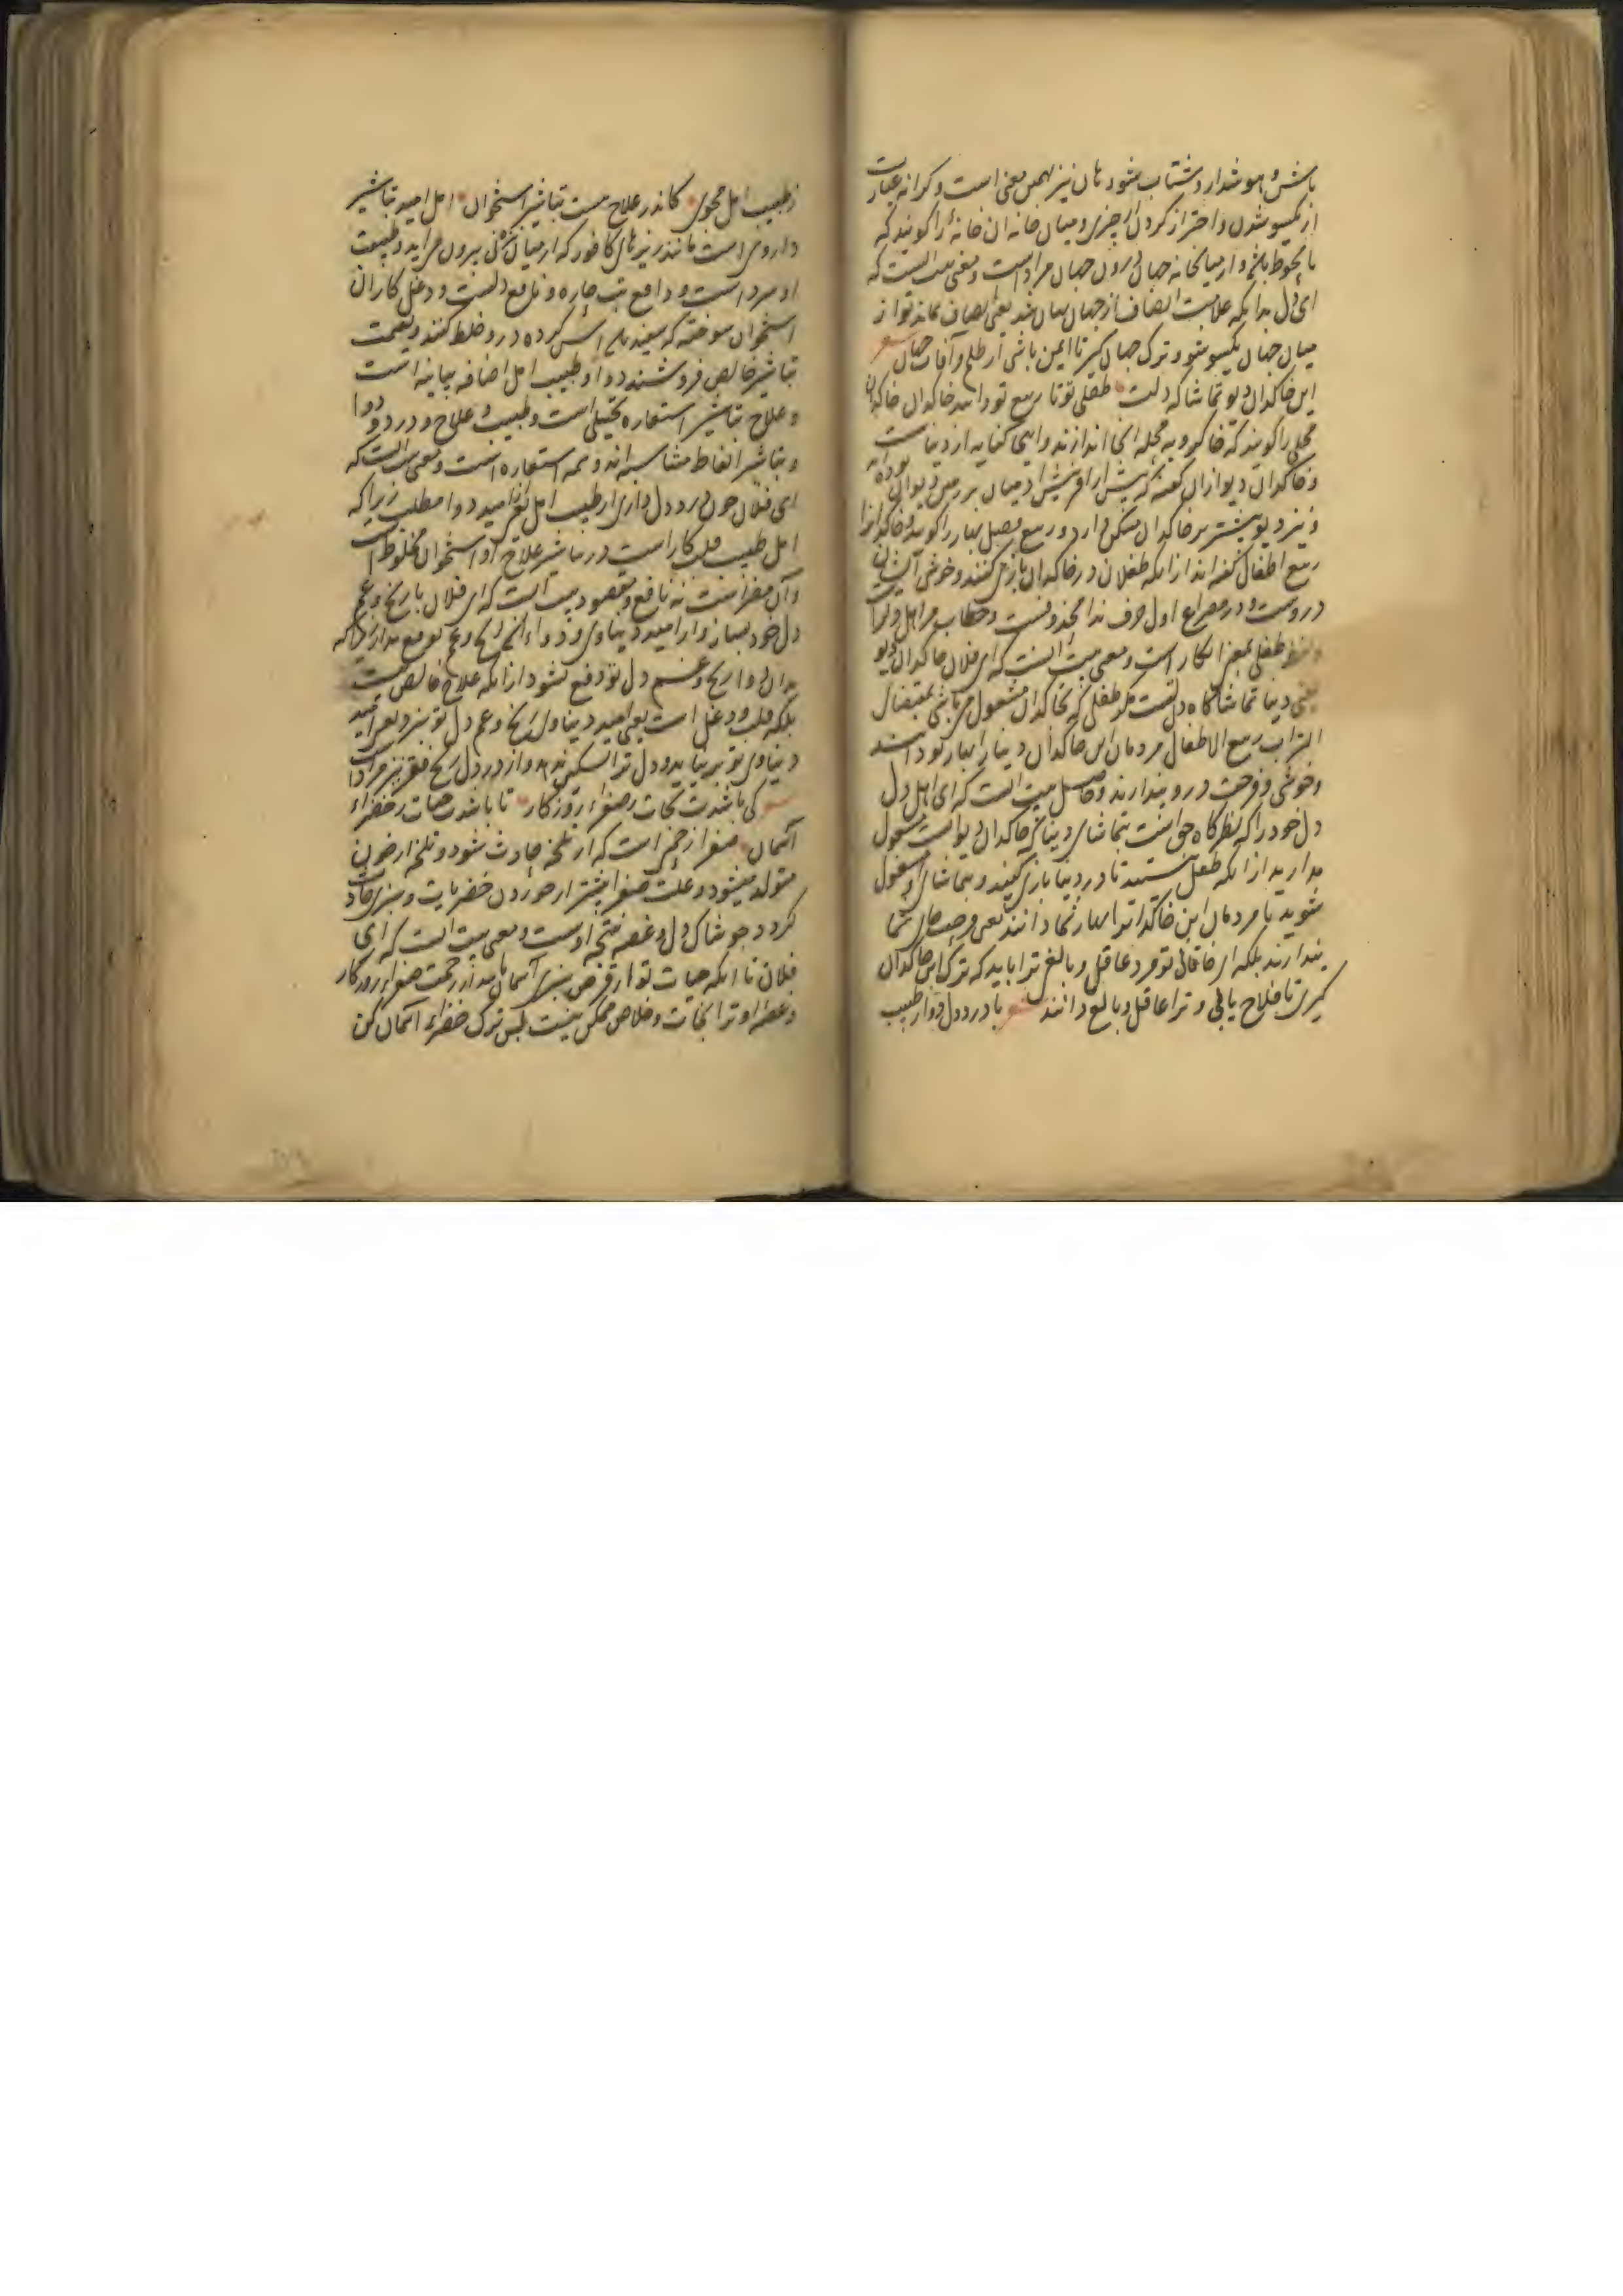 باش و هوشدار و شتاب شود هان نیز بهمین معنی است و کرانه عبارت
از یکسو شدن و احتراز کردن از چیزی و میان خانه آن خانهٔ را گویند که
محوطه باشد و از میانخانه جهان درون جهان مراد است و معنی بیت آنست که
ای دل بدانکه علامت انصاف از جهان نهان شد یعنی انصاف نماند تو از
میان جهان یکسو شو و ترک جهان گیر تا ایمن باشی از ظلم و آفات جهان شعر
این خاکدان دیو تماشاکه دلت طفلی تو تا ربیع تو دانند خاکدان خاکدان
محلی را گویند که خاکروبه محله آنجا اندازند و اینجا کنایه از دنیاست
و خاکدان دیو ازان گفته که پیش از آفرینش آدمیان بر زمین دیوان بوده‌اند
و نیز دیو بیشتر بر خاکدان مسکن دارد و ربیع فصل بهار را گویند و خاکدانرا
ربیع اطفال گفته‌اند ازانکه طفلان در خاکدان بازی کنند و خوشی ایشان
دروست و در مصراع اول حرف ندا محذوفست و خطاب مر اهل دلراست
و لفظ طفلی بمعنی انکار است و معنی بیت آنست که ای فلان خاکدان دیو
یعنی دنیا تماشاگاه دلتست مگر طفلی که بخاکدان مشغول می‌باشی بمقتضای
التراب ربیع الاطفال مردمان این خاکدان دنیا را بهار تو دانند
و خوشی و فرحت درو پندارند و حاصل بیت آنست که ای اهل دل
دل خود را که نظرگاه حق است بتماشای دنیا که خاکدان دیو است مشغول
مدارید ازانکه طفل نیستید تا در دنیا بازی کنید و بتماشای او مشغول
شوید تا مردمان این خاکدانرا بهار شما دانند یعنی فرحت جان شما
پندارند بلکه ای خاقانی تو مرد عاقل و بالغی ترا باید که ترک این خاکدان
گیری تا فلاح یابی و ترا عاقل و بالغ دانند شعر با درد دل دوا ز طبیب
ز طبیب امل مجوی کاندر علاج هست تباشیر استخوان امل امید تباشیر
داروی است مانند ریزهای کافور که از میان نی بیرون می‌آید و طبیعت
او سرد است و دافع تب حاره و نافع دلست و دغل کاران
استخوان سوخته که سفید درو خلط کنند و بقیمت
تباشیر خالص فروشند و دوا و طبیب امل اضافه بیانیه است
و علاج تباشیر استعاره تخییلی است و طبیب و علاج و درد و دوا
و تباشیر الفاظ متناسبه‌اند و تتمه استعاره است و معنی بیت آنست که
ای فلان چون درد دل داری از طبیب امل یعنی امید دوا مطلب زیرا که
امل طبیب قلب کار است و در تباشیر علاج او استخوان مخلوط است
و آن مضر است نه نافع و مقصود بیت آنست که ای فلان با رنج و غم
دل خود بساز و از امید دنیاوی دواء آن رنج و غم توقع مدار زیرا که
بدان دوا رنج و غم دل تو دفع نشود ازانکه علاج خالص نیست
بلکه قلب و دغل است یعنی امید دنیاوی رنج و غم دل تو نبرد یعنی امید
دنیاوی تو برنیاید و دل ترا تسکین ندهد و از درد دل رنج فقر نیز مراد است
شعر کی باشدت نجات ز صفراء روزگار تا باشدت حیات ز خضراء
آسمان صفرا زحمتی است که از تلخه حادث شود و تلخه از خون
متولد میشود و علت صفرا بیشتر از خوردن خضریات و سبزی حادث
گردد و جوشاک دل و غصه نتیجه اوست و معنی بیت آنست که ای
فلان تا آنکه حیات تو از قرص سبزی آسمان باشد از زحمت صفراء روزگار
و غصه او ترا نجات و خلاص ممکن نیست پس ترک خضراء آسمان کن